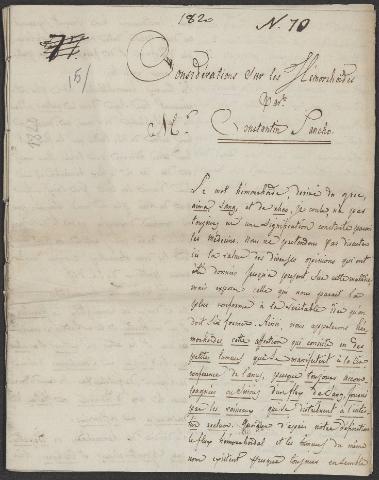 1820
N. 70
15/
1820
Considérations sur les Hémorrhoïdes
Par
Mr. Constantin Sancho.
Le mot hémorrhoïde, dérivé du grec,
aima Sang, et de rheo, je coule, n'a pas
toujours eu une signification constante parmi
les médecins. Nous ne prétendons pas discuter
ici la valeur des diverses opinions qui ont
été données jusqu'à présent sur cette matière
mais exposer celle qui nous parait la
plus conforme à la véritable idée qu'on
doit s'en former. Ainsi, nous appelerons hé-
morhoïdes, cette affection qui consiste en des
petites tumeurs qui se manifestent à la cir-
conférence de l'anus, presque toujours accom-
pagnées d'un flux de Sang, fourni
par les vaisseaux qui se distribuent à l'intes-
tin rectum. d'après notre définition
le flux hémorrhoidal et les tumeurs du même
nom existent presque toujours ensemble